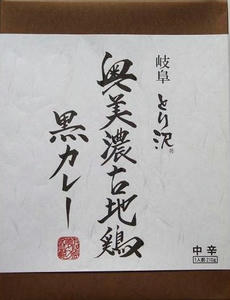 岐阜 とり沢
奥美濃古地鶏
黒カレー
中辛
1人前 210g